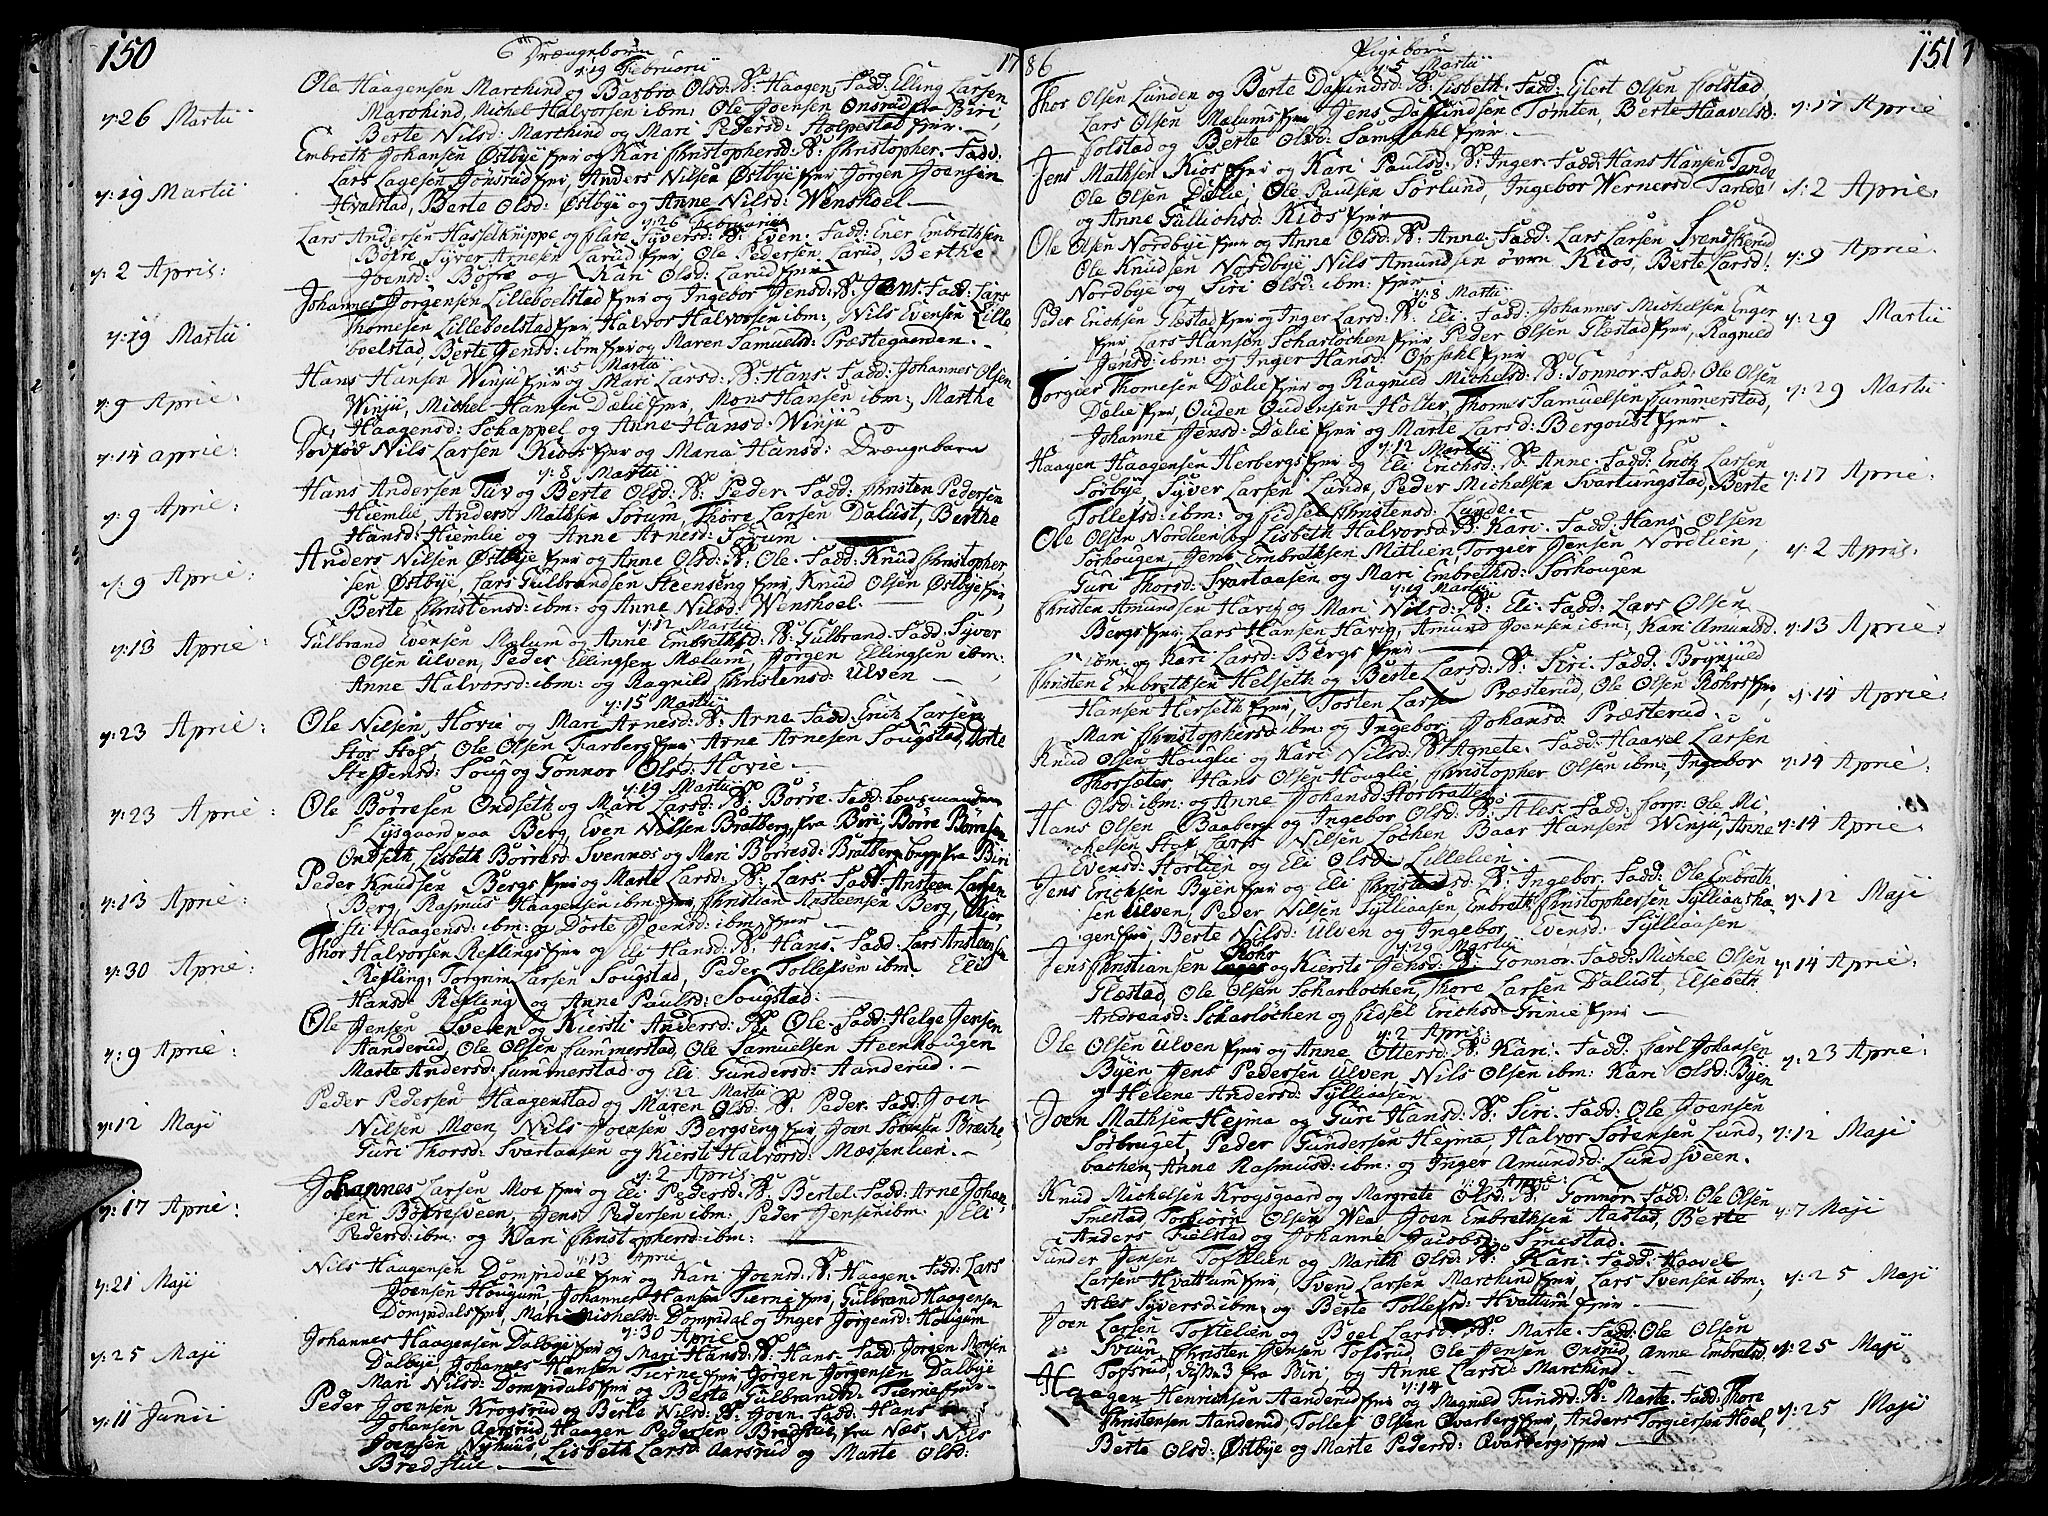 150
Drængebørn
17
d: 19 Februarii
Ole Haagensen Marchind og Barbra Olsd: B: Haagen. Fadd: Elling Larsen
y: 26 Martii
Marchind, Michel Halvorsen ibm: Ole Joensen Onsrud fra Biri,
Berte Nilsd: Marchind og Mari Pedersd: Holpestad
Embreth Johansen Østbye og Kari Christophersd: B: Christopher. Fadd:
y: 19 Martii
Lars Lagesen Jønsrud Anders Nilsen Østbye Jørgen Joensen
Hvalstad, Berte Olsd: Østbye og Anne Nilsd: Wenshoel
y: 26 Februarii
Lars Andersen Hasselknippe og Syversd: B: Even. Fadd: Ener Embrethsen
y: 2 Apris:
Bøfre, Syver Arnesen Larud Ole Pedersen Larud, Berthe
Joensd: Bøfre og Kari Olsd: Larud
Johannes Jørgensen Lilleboelstad og Ingebor Jensd: B: Jens. Fadd: Lars
y: 19 Martii
Thomesen Lilleboelstad Halvor Halvorsen ibm: Nils Evensen Lille
boelstad, Berte Jensd: ibm og Maren Samuelsd: Præstegaarden.
y: 5 Martii
Hans Hansen Winju og Mari Larsd: B: Hans. Fadd: Johannes Olsen
y: 9 Aprie:
Winju, Michel Hansen Dælie Mons Hansen ibm: Marthe
Haagensd: Schappel og Anne Hansd: Winju
y: 14 aprie:
Dødfød Nils Larsen Kios og Maria Hansd: Drængebarn
y: 8 Martii
Hans Andersen Tuv og Berte Olsd: B: Peder. Fadd: Christen Pedersen
y: 9 Aprie:
Hiemlie, Anders Mathsen Sørum, Thore Larsen Dalust, Berthe
Hansd: Hiemlie og Anne Arnesd: Sørum
Anders Nilsen Østbye og Anne Olsd: B: Ole. Fadd: Knud Christopher
y: 9 Aprie:
sen Østbye, Lars Gulbrandsen Steenseng Knud Olsen Østbye
Berte Christensd: ibm: og Anne Nilsd: Wenshoel.
y: 12 Martii
Gulbrand Evensen Mælum og Anne Embrethsd: B: Gulbrand. Fadd: Syver
y: 13 Aprie:
Olsen Ulven, Peder Ellingsen Mælum, Jørgen Ellingsen ibm:
Anne Halvorsd: ibm: og Ragnild Christensd: Ulven
y: 15 Martii
Ole Nilsen Hovie og Mari Arnesd: B: Arne. Fadd: Erich Larsen
y: 23 Aprie:
Stor Hof, Ole Olsen Farberg Arne Arnesen Sougstad, Dorte
Steffensd: Soug og Gonnor Olsd: Hovie
y: 19 Martii
Ole Børresen Ondseth og Mari Larsd: B: Børre. Fadd:
y: 23 Aprie:
Lysgaard paa Berg, Even Nilsen Bratberg, fra Biri, Børre Børresen
Ondseth, Lisbeth Børresd: Svennæs og Mari Børresd: Bratberg begge fra Biri
Peder Knudsen Bergs og Marte Larsd: B: Lars. Fadd: Ansteen Larsen
y: 13 Aprie:
Berg, Rasmus Haagensen ibm Christian Ansteensen Berg, Kier
sti Haagensd: ibm: og Dorte Joensd: ibm
Thor Halvorsen Reflings og Eli Hansd: B: Hans. Fadd: Lars Ansteensen
y: 30 Aprie:
Refling, Torgrim Larsen Sougstad, Peder Tollefsen ibm. Eli
Hansd: Refling og Anne Paulsd: Sougstad.
Ole Jensen Sveen og Kiersti Andersd: B: Ole. Fadd: Helge Jensen
y: 9 Aprie:
Aanderud, Ole Olsen Summerstad, Ole Samuelsen Steenhougen
Marte Andersd: Summerstad og Eli Gundersd: Aanderud.
y: 22 Martii
Peder Pedersen Haagenstad og Maren Olsd: B: Peder. Fadd: Joen
y: 12 Maji
Nilsen Moen, Nils Joensen Bergseng Joen Sørensen Bræche,
Guri Thorsd: Svartaasen og Kiersti Halvorsd: Mæssenlien.
y: 2 Apris:
Johannes Larsen Moe og Eli Pedersd: B: Bertel. Fadd: Arne Johan
y: 17 Aprie:
sen Bøfresveen, Jens Pedersen ibm: Peder Jensen ibm: Eli
Pedersd: ibm: og Kari Christophersd: ibm:
y: 13 Aprie
Nils Haagensen Dompidal og Kari Joensd: B: Haagen. Fadd: Lars
y: 21 Maji
Joensen Hougum Johannes Hansen Tierne Gulbrand Haagensen
Dompidals Mari Michelsd: Dompidal og Inger Jørgensd: Hougum
y: 30 Aprie
Johannes Haagensen Dalbye og Mari Hansd: B: Hans. Fadd: Jørgen Monsen
y: 25 Maji
Dalbye, Johannes Hansen Tierne Jørgen Jørgensen Dalbye
Mari Nilsd: Dompidals og Berte Gulbrandsd: Tierne
Peder Joensen Krogsrud og Berte Nilsd: B: Joen. Fadd: Hans
y: 11 Junii
Johansen Aarsrud, Haagen Pedersen Bredstue, fra Næs, Nils
Joensen Nyhuus, Lisbeth Larsd: Aarsrud og Marte Olsd:
Bredstue
86
Pigebørn
151
y: 5 Martii
Thor Olsen Lunden og Berte Dafindsd: B: Lisbeth. Fadd: Glert Olsen Folstad,
y: 17 Aprie
Lars Olsen Mælums Jens Dafindsen Tomten, Berte Haavelsd:
Folstad og Berte Olsd: Samdahl
Jens Mathsen Kios og Kari Paulsd: B: Inger. Fadd: Hans Hansen Tande
y: 2 Aprie:
Ole Olsen Dælie, Ole Paulsen Sørlund, Ingebor Wernersd: Tande,
og Anne Gullichsd: Kios
Ole Olsen Nordbye og Anne Olsd: B: Anne. Fadd: Lars Larsen Svendskerud
y: 9 Aprie:
Ole Knudsen Nordbye Nils Amundsen øvre Kios, Berte Larsd:
Nordbye og Siri Olsd: ibm:
y: 8 Martii
Peder Erichsen Glæstad og Inger Larsd: B: Eli. Fadd: Johannes Michelsen Enger
y: 29 Martii
Lars Hansen Scharlochen Peder Olsen Glæstad Ragnild
Jensd: ibm: og Inger Hansd: Opsahl
Torgier Thomesen Dælie og Ragnild Michelsd: B: Gonnor. Fadd: Ole Olsen
y: 29 Martii
Dælie Ouden Oudensen Holter, Thomes Samuelsen Summerstad,
Johanne Jensd: Dælie og Marte Larsd: Bergoust
y: 12 Martii
Haagen Haagensen Herbergs og Eli Erichsd: B: Anne. Fadd: Erich Larsen
y: 17 Aprie:
Sørbye, Syver Larsen Lunde, Peder Michelsen Svartungstad, Berte
Tollefsd: ibm: og Sidsel Christensd: Lunde
Ole Olsen Nordlien og Lisbeth Halvorsd: B: Kari. Fadd: Hans Olsen
y: 2 Apris:
Sørhougen, Jens Embrethsen Mitlien Torgier Jensen Nordlien,
Guri Thorsd: Svartaasen og Mari Embrethsd: Sorhougen
y: 19 Martii
Christen Amundsen Havig og Mari Nilsd: B: Eli. Fadd: Lars Olsen
y: 13 Aprie:
Bergs Lars Hansen Havig, Amund Joensen ibm: Kari Amundsd:
ibm: og Kari Larsd: Bergs
Christen Embrethsen Helseth og Berte Larsd: B: Siri. Fadd: Brynjuld
y: 14 Aprie:
Hansen Herseth Tosten Larsen Præsterud, Ole Olsen Rohrs
Mari Christophersd: ibm: og Ingebor Johansd: Præsterud.
Knud Olsen Houglie og Kari Nilsd: B: Agnete. Fadd: Haavel Larsen
y: 14 Aprie:
Thorsæter Hans Olsen Houglie, Christopher Olsen ibm: Ingebor
Olsd: ibm: og Anne Johansd: Stortratten
Hans Olsen Baaberg og Ingebor Olsd: B: Ales. Fadd: Corp: Ole Mi
y: 14 Aprie:
chelsen Hof Lars Nilsen Lochen Baar Hansen Winju, Anne
Evensd: Horlien og Eli Olsd: Lillelien
Jens Erichsen Byen og Eli Christensd: B: Ingebor. Fadd: Ole Embreth
y: 12 Maji
sen Ulven, Peder Nilsen Sylliaasen, Embreth Christophersen Sylliaasha
gen Berte Nilsd: Ulven og Ingebor Evensd: Sylliaasen
y: 29 Martii
Rohr
Jens Christiansen og Kiersti Jensd: B: Gonnor. Fadd: Michel Olsen
y: 14 Aprie:
Glæstad, Ole Olsen Scharlochen, Thore Larsen Dalust, Elsebeth
Andreasd: Scharlochen og Sidsel Erichsd: Grinie
y: 2 Apris:
Ole Olsen Ulven og Anne Ottersd: B: Kari. Fadd: Carl Johansen
y: 23 Aprie:
Byen Jens Pedersen Ulven, Nils Olsen ibm: Kari Olsd: Byen
og Helene Andersd: Sylliaasen
Joen Mathsen Hejma og Guri Hansd: B: Siri. Fadd: Ole Joensen
y: 12 Maji
Sørbruget, Peder Gundersen Hejma, Halvor Sørensen Lund,
bachen, Anne Rasmusd: ibm: og Inger Amundsd: Lundsveen.
y: 9 Aprie:
Knud Michelsen Krogsgaard og Margrete Olsd: B: Gonnor. Fadd: Ole Olsen
y: 7 Maji
Smestad, Torbiørn Olsen Wea Joen Embrethsen Aastad, Berte
Anders Fielstad og Johanne Jacobsd: Smestad.
Gunder Jensen Toftelien og Marith Olsd: B: Kari. Fadd: Haavel
y: 25 Maji
Larsen Hvattum Svend Larsen Marchind Lars Svensen ibm:
Ales Syversd: ibm: og Berte Tollefsd: Hvattum
Joen Larsen Toftelien og Boel Larsd: B: Marte. Fadd: Ole Olsen
y: 25 Maji
Sveen Christen Jensen Tofsrud Ole Jensen Onsrud, Anne Embretsd:
Tofsrud, disse 3 fra Biri, og Anne Larsd: Marchind.
y: 14
Haagen Henrichsen Aanderud og Magnild Gundersd: B: Marte. Fadd: Thore
y: 25 Maji
Christensen Aanderud, Tollef Olsen Qvarberg Anders Torgiersen Hoel,
Berte Olsd: Østbye og Marte Pedersd: Qvarbergs